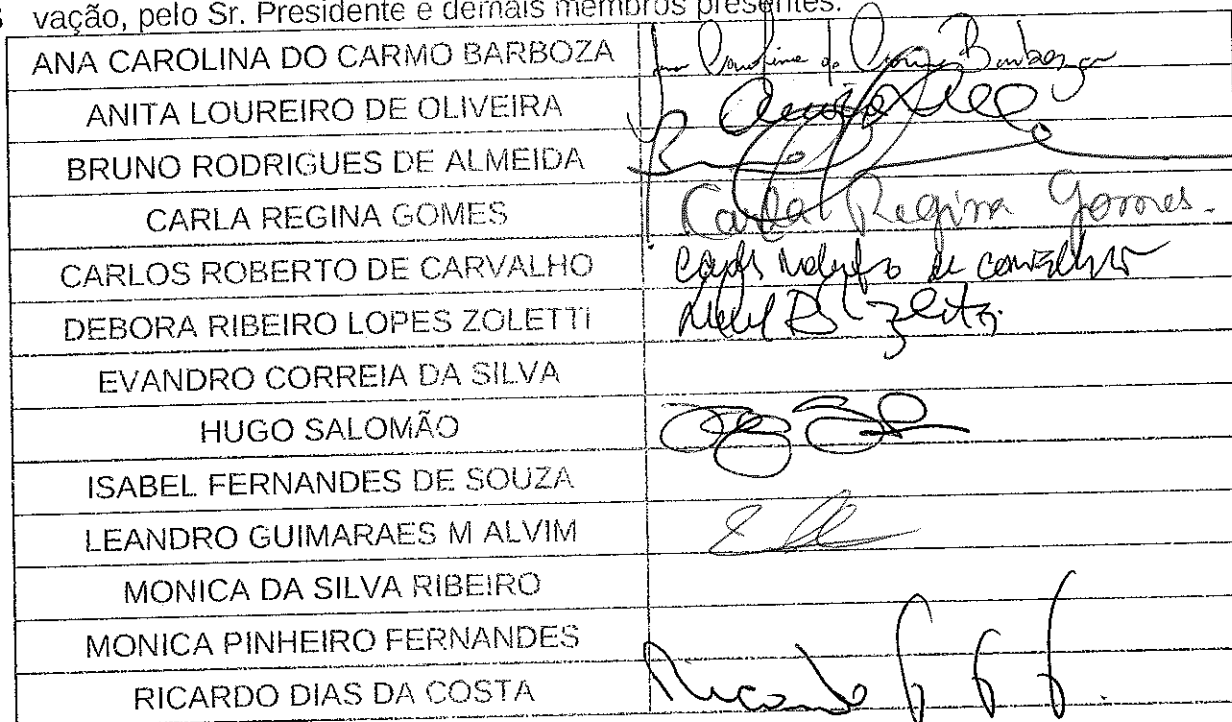 vação, pelo Sr. Presidente e demais membros presentes.
ANA CAROLINA DO CARMO BARBOZA Ana Carolina do Carmo Barboza
ANITA LOUREIRO DE OLIVEIRA
BRUNO RODRIGUES DE ALMEIDA
CARLA REGINA GOMES Carla Regina Gomes.
CARLOS ROBERTO DE CARVALHO Carlos Roberto de Carvalho
DEBORA RIBEIRO LOPES ZOLETTI
EVANDRO CORREIA DA SILVA
HUGO SALOMÃO
ISABEL FERNANDES DE SOUZA
LEANDRO GUIMARAES M ALVIM
MONICA DA SILVA RIBEIRO
MONICA PINHEIRO FERNANDES
RICARDO DIAS DA COSTA Ricardo